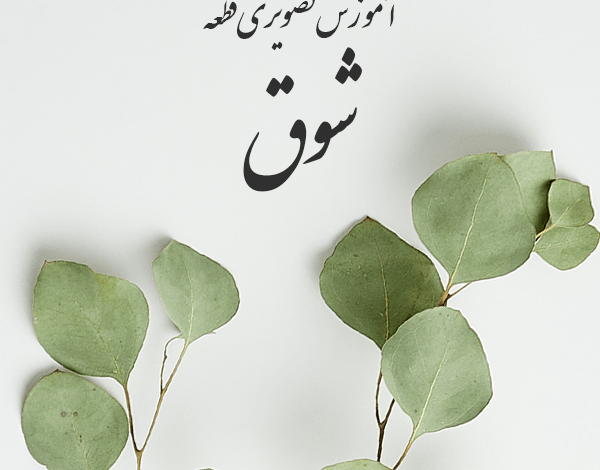 آموزش تصویری قطعه
شوق